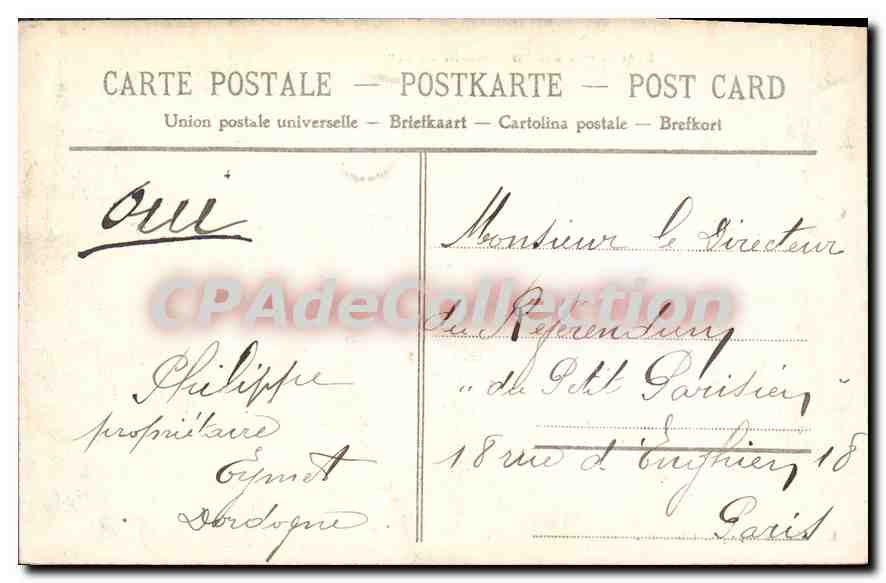 CARTE POSTALE — POSTKARTE — POST CARD
Union postale universelle — Briefkaart — Cartolina postale — Brefkort
oui
Philippe
propriétaire
Eymet
Dordogne
Monsieur le Directeur
du Référendum
" du Petit Parisien "
18 rue d'Enghien, 18
Paris
CPAdeCollection